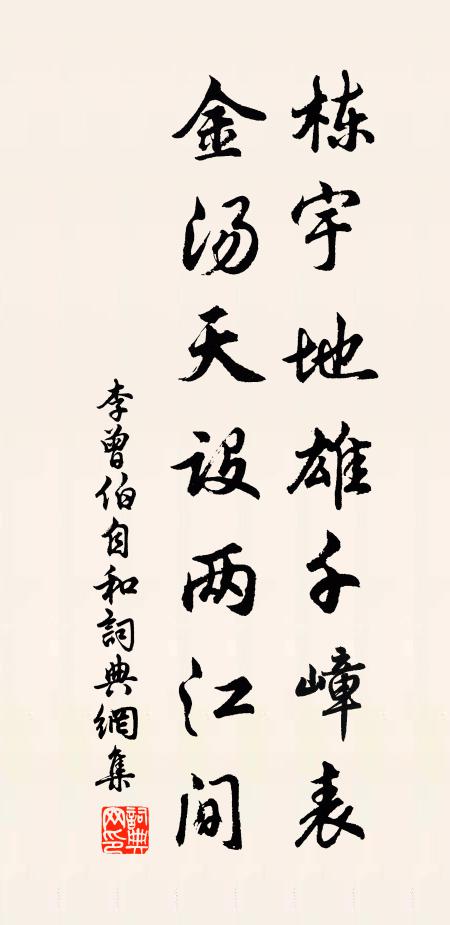 栋宇地雄千嶂表
金汤天设两江间
李曾伯自和詞典網集
詞典网印